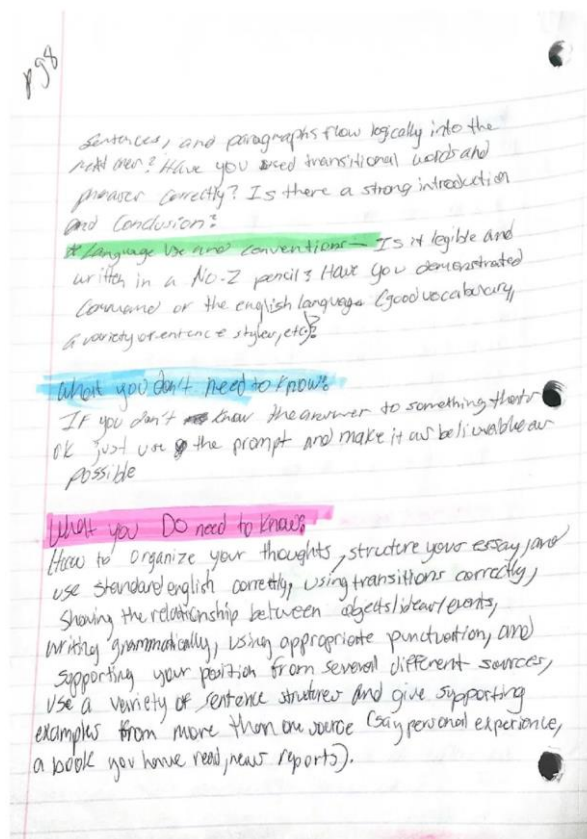 pg8
sentences, and paragraphs flow logically into the
next ones? Have you used transitional words and
phrases correctly? Is there a strong introduction
and conclusion?
* Language Use and conventions— Is it legible and
written in a No-2 pencil? Have you demonstrated
command of the english language (good vocabulary,
a variety of sentence styles, etc)?
What you don't need to know?
If you don't know the answer to something that's
ok just use the prompt and make it as believable as
possible
What you Do need to know?
How to organize your thoughts, structure your essay, and
use standard english correctly, using transitions correctly,
Showing the relationship between objects/ideas/events,
writing grammatically, using appropriate punctuation, and
supporting your position from several different sources,
use a variety of sentence structures and give supporting
examples from more than one source (say personal experience,
a book you have read, news reports).